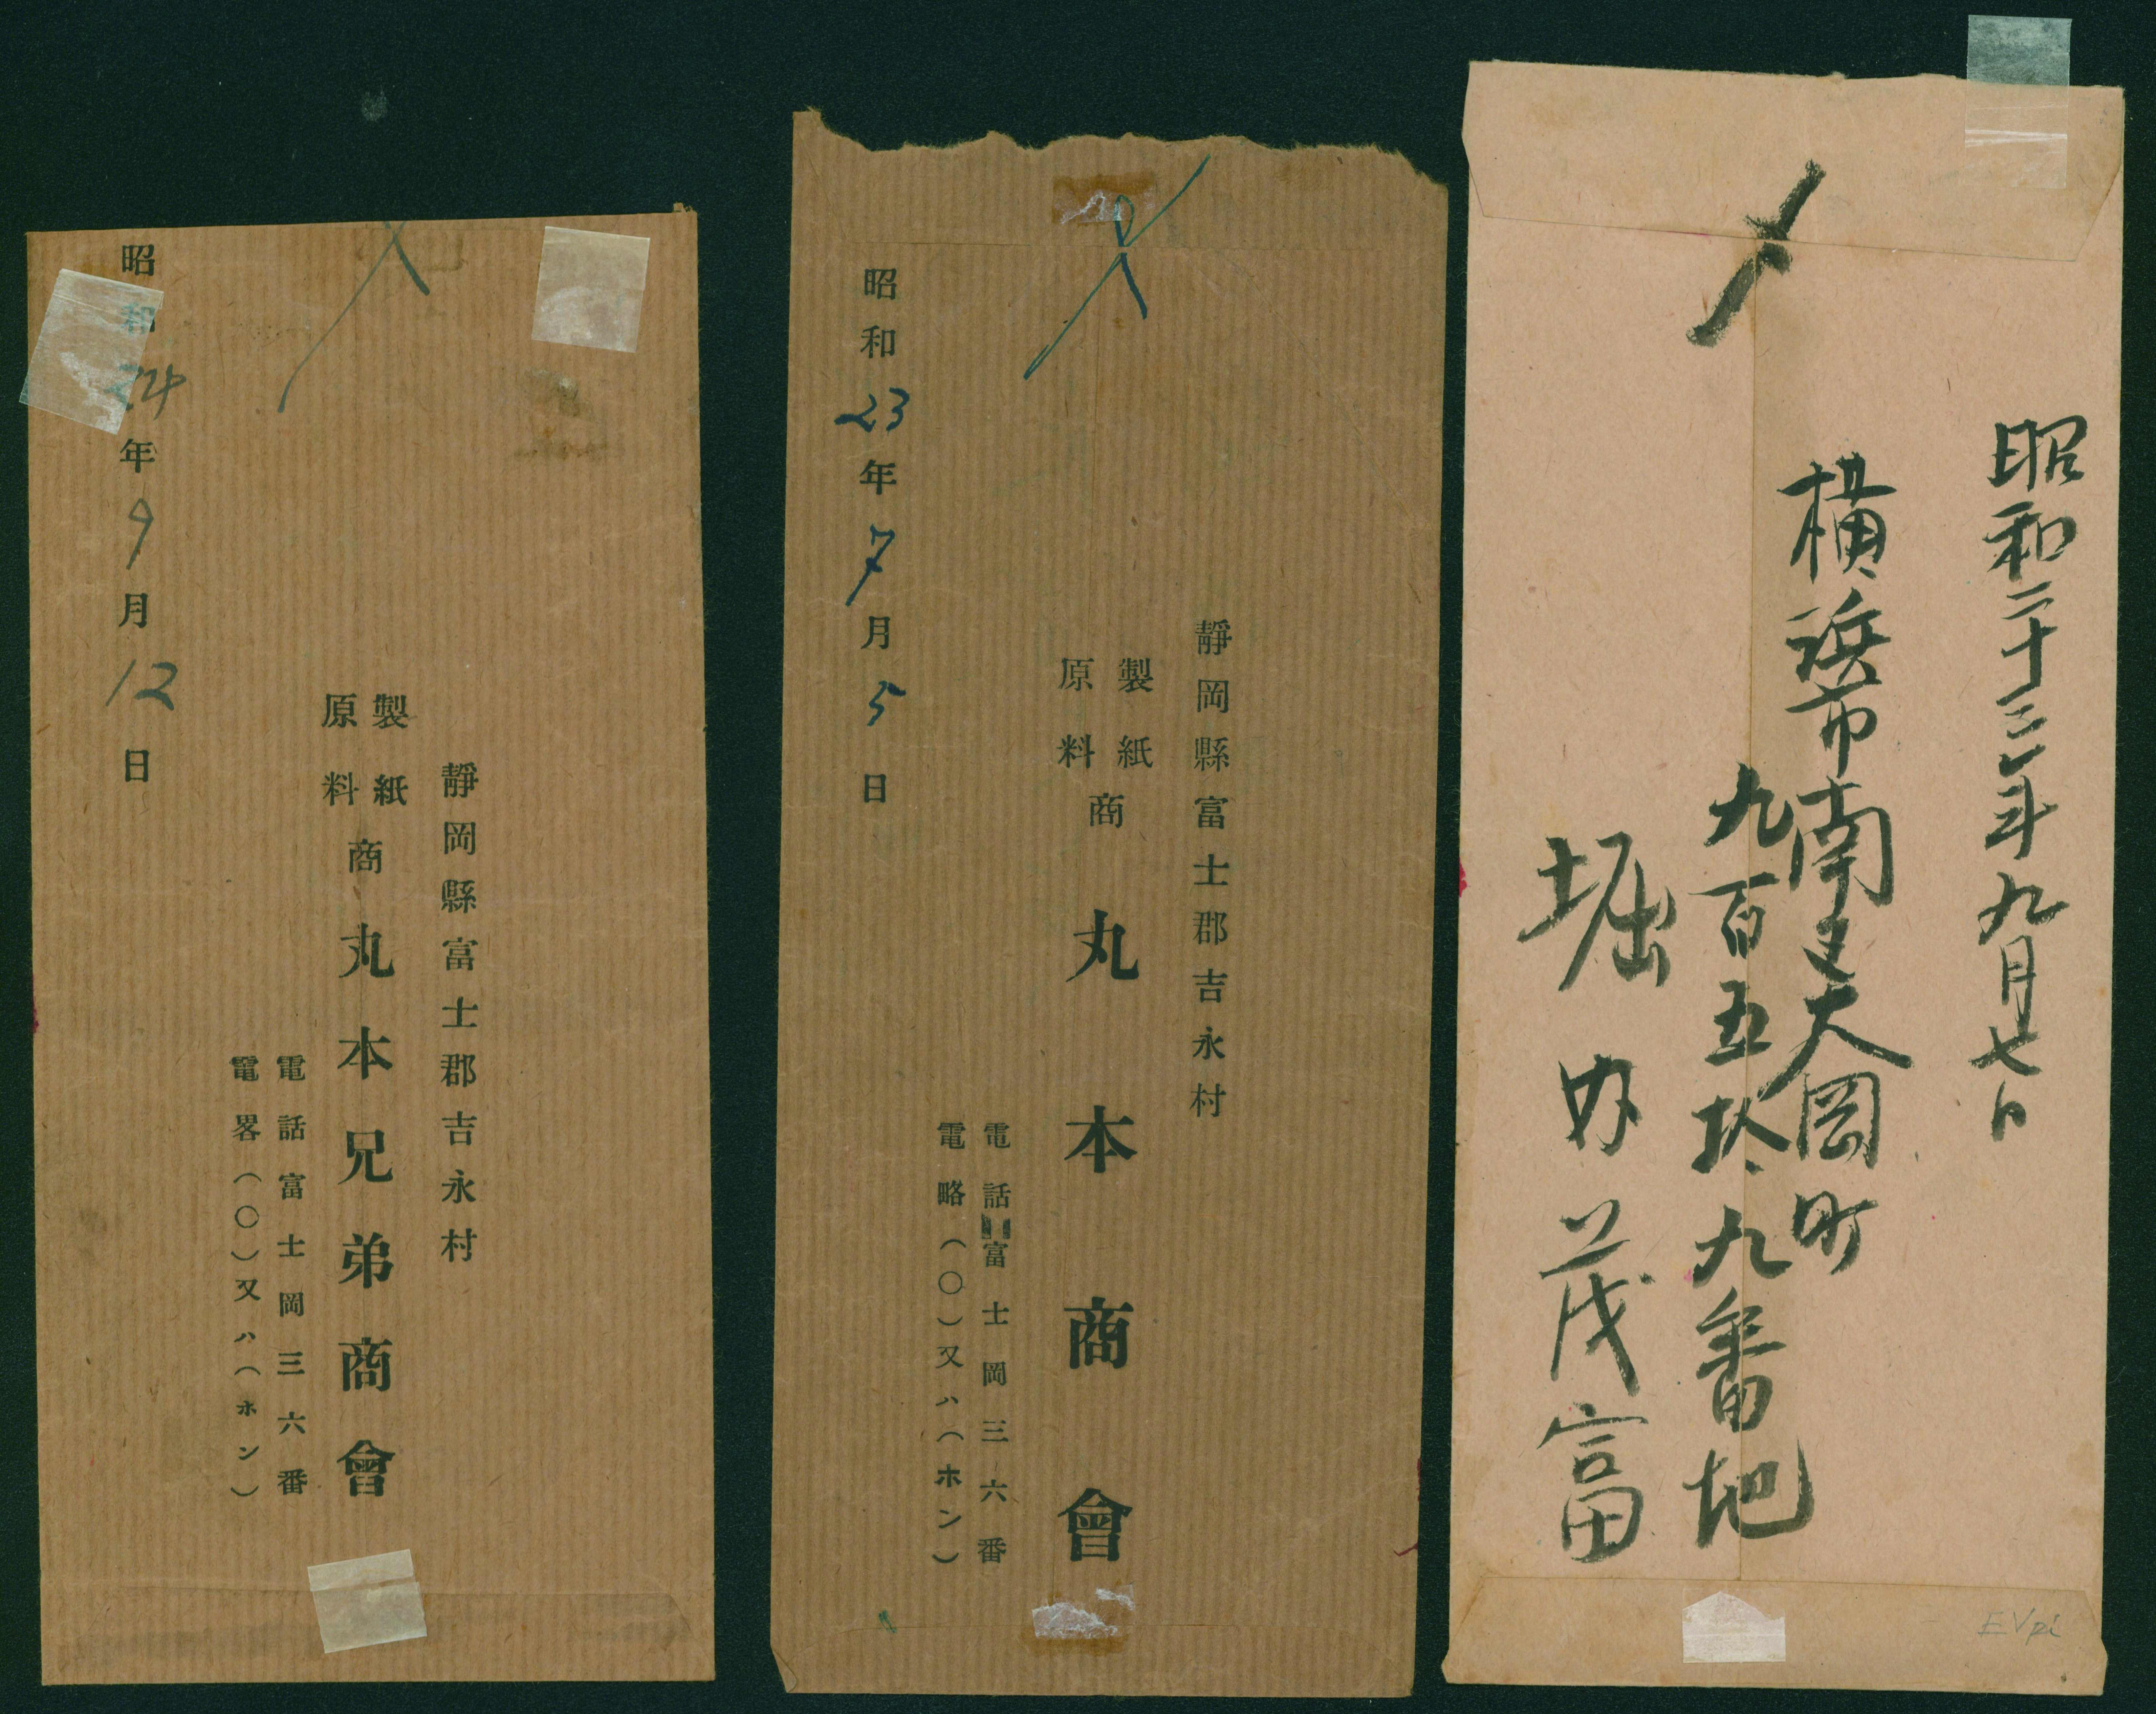 昭和二十三年九月七日
横浜市南区大岡町
九百五拾九番地
堀内茂富
EVpi
静岡縣富士郡吉永村
製紙
原料
商
丸本商會
電話富士岡三六番
電略(〇)又ハ(ホン)
昭和23年7月5日
静岡縣富士郡吉永村
製紙
原料
商
丸本兄弟商會
電話富士岡三六番
電畧(〇)又ハ(ホン)
昭和24年9月12日